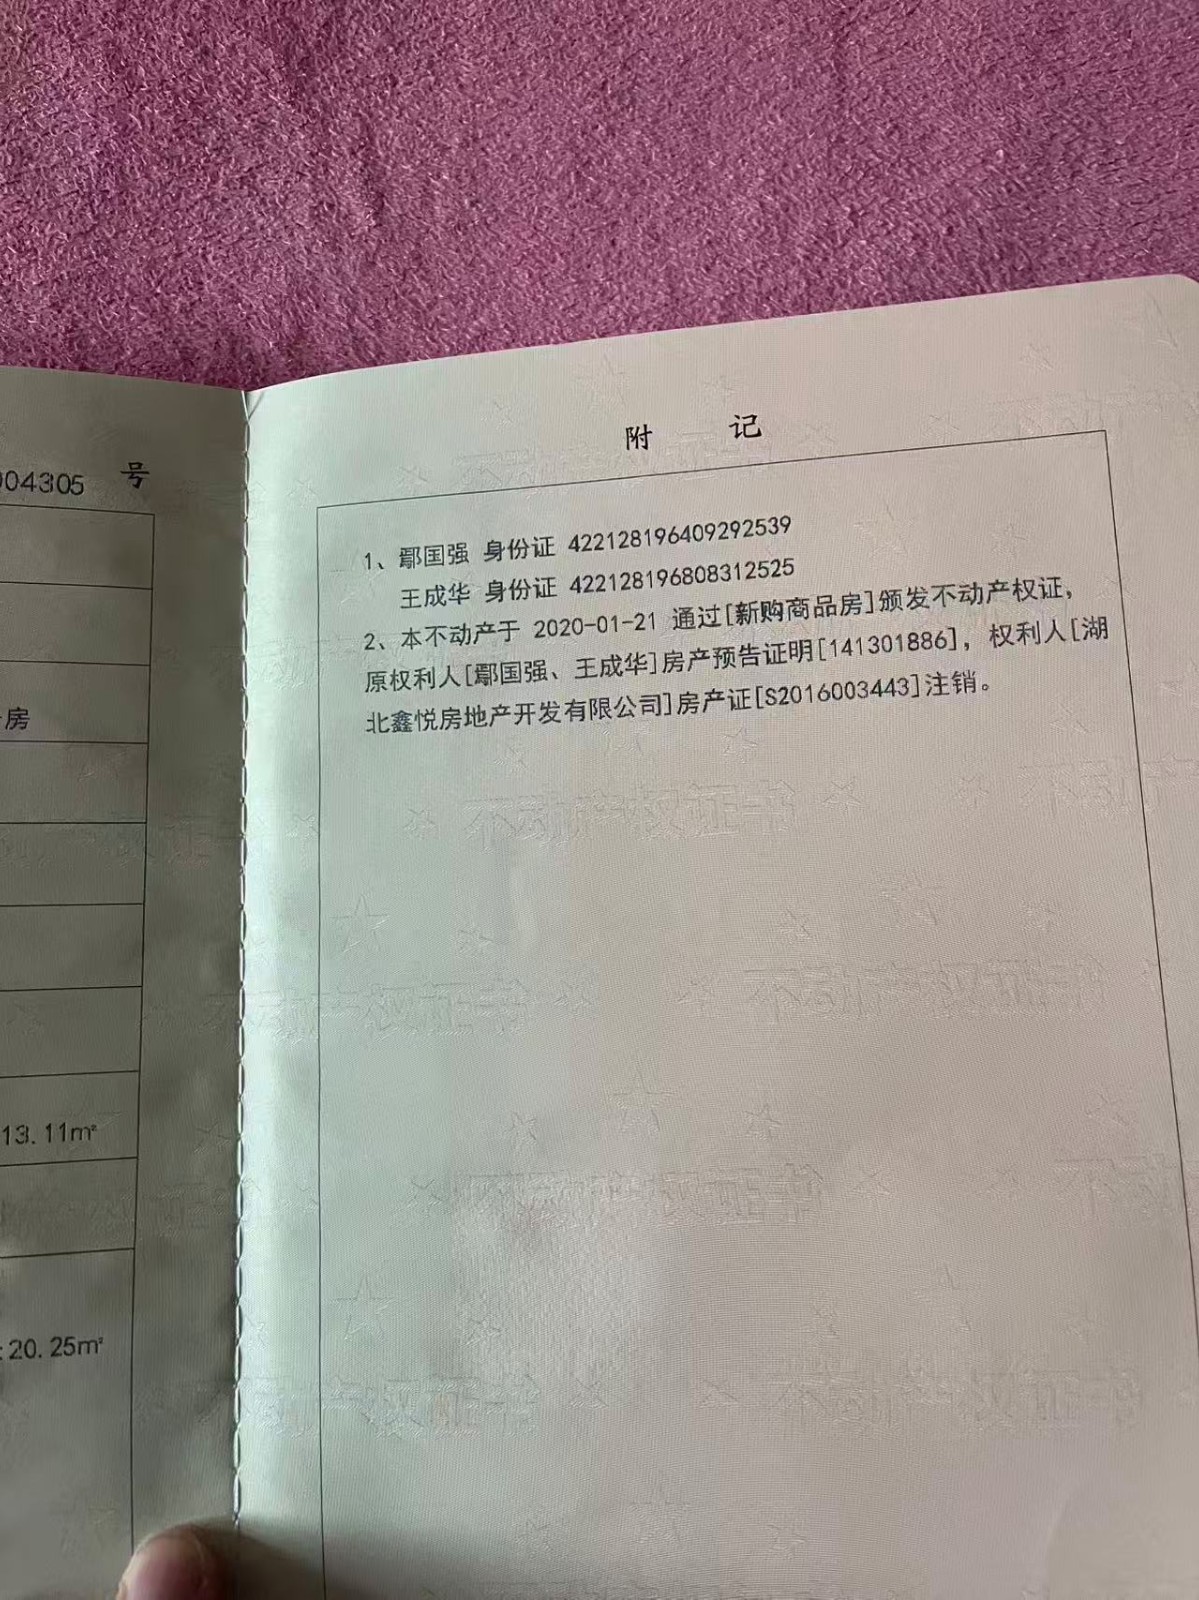 004305 号
房
13.11㎡
20.25㎡
附 记
1、鄢国强 身份证 422128196409292539
王成华 身份证 422128196808312525
2、本不动产于 2020-01-21 通过[新购商品房]颁发不动产权证，
原权利人[鄢国强、王成华]房产预告证明[141301886]，权利人[湖
北鑫悦房地产开发有限公司]房产证[S2016003443]注销。
不动产权证书
不动产权证书
不动产权证书
不动产权证书